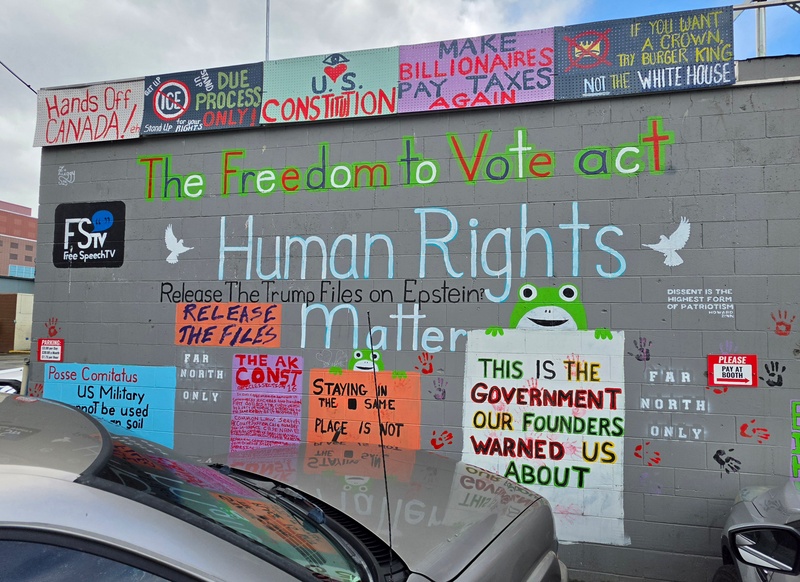 Hands Off
CANADA!
eh
GET UP
STAND UP
ICE
DUE
PROCESS
ONLY!
Stand Up for your RIGHTS
U.S.
CONSTITUTION
MAKE
BILLIONAIRES
PAY TAXES
AGAIN
IF YOU WANT
A CROWN,
TRY BURGER KING
NOT THE WHITE HOUSE
The Freedom to Vote act
FSTV
Free SpeechTV
Human Rights
Matter
Release The Trump Files on Epstein?
RELEASE
THE FILES
DISSENT IS THE
HIGHEST FORM
OF PATRIOTISM
HOWARD
ZINN
PARKING:
PLEASE
PAY AT
BOOTH
FAR
NORTH
ONLY
THE AK
CONST
Posse Comitatus
US Military
not be used
on soil
STAYING IN
THE SAME
PLACE IS NOT
THIS IS THE
GOVERNMENT
OUR FOUNDERS
WARNED US
ABOUT
FAR
NORTH
ONLY